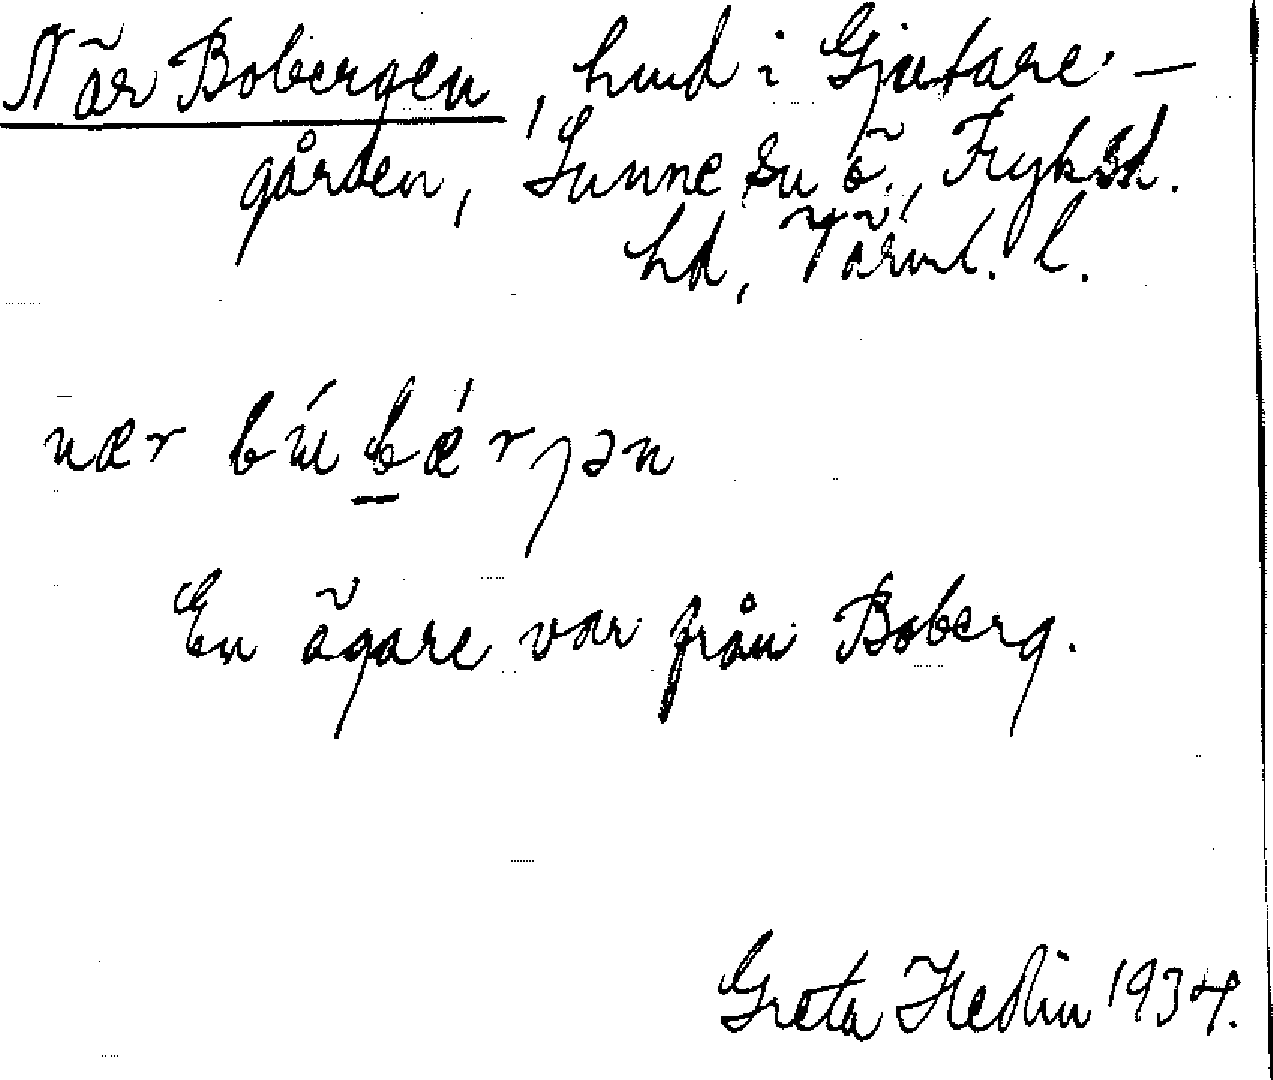 När Bobergen, hmd i Gjutare-
gården, Sunne su ö., Fryksd.
hd, Värml. l.
nær búbǽrjən
En ägare var från Boberg.
Greta Hedin 1934.